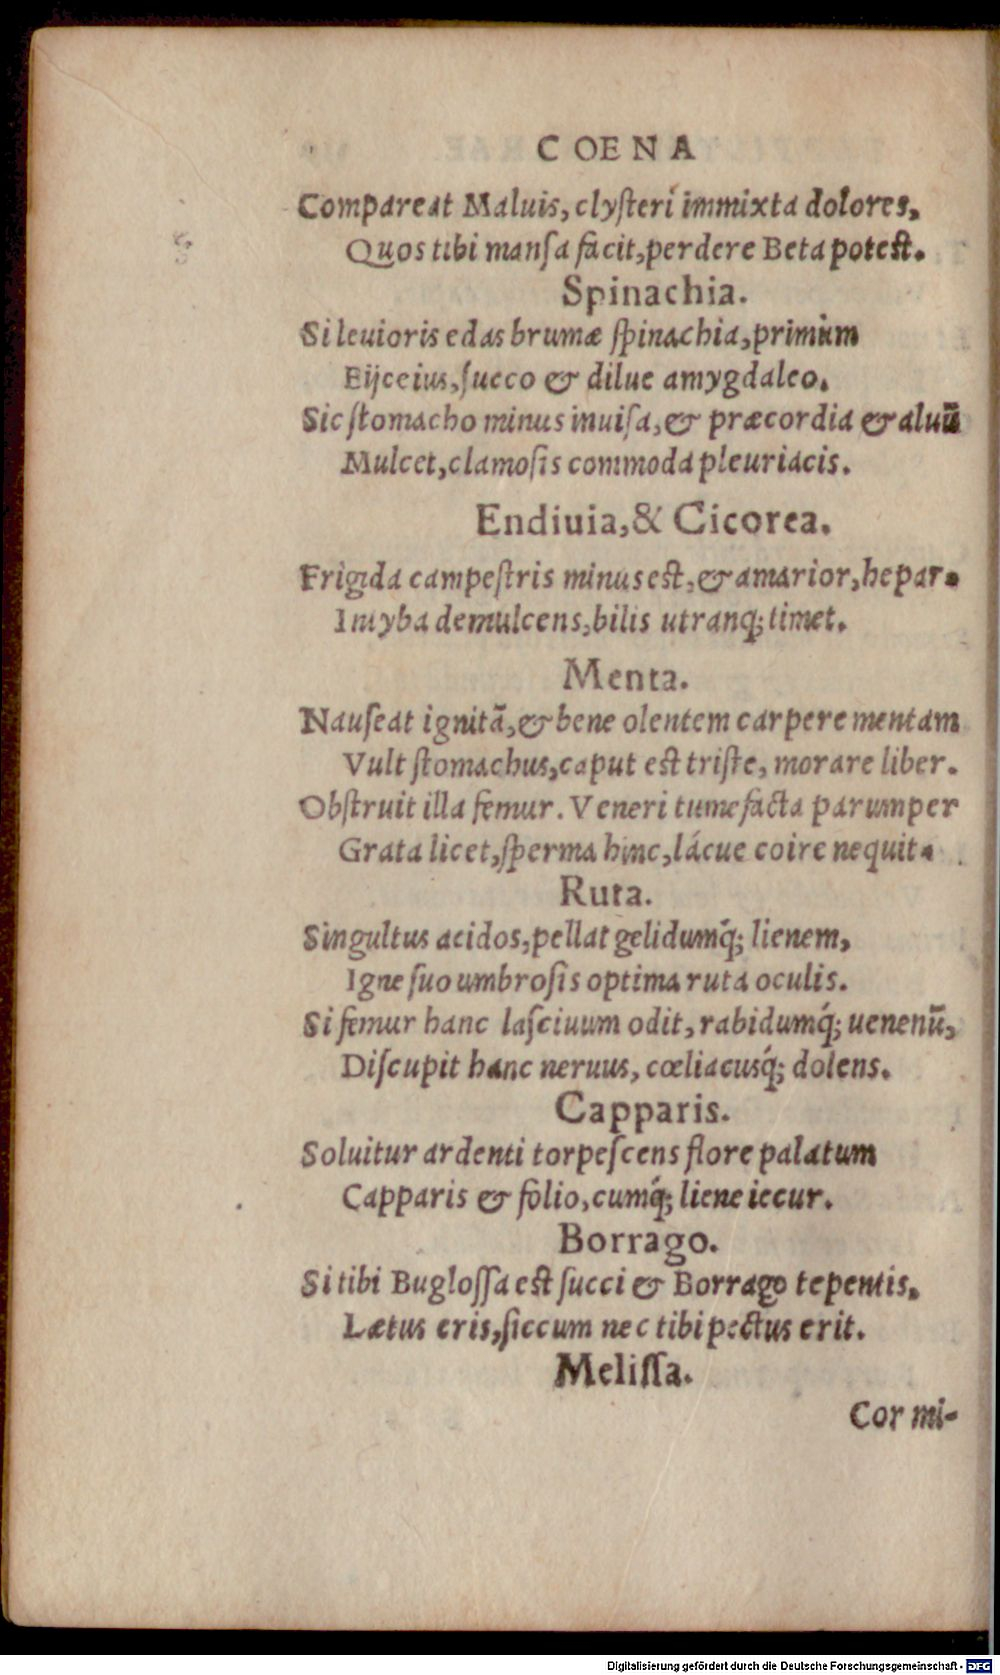 COENA
Compareat Maluis, clyſteri immixta dolores,
Quos tibi manſa facit, perdere Beta poteſt.
Spinachia.
Si leuioris edas brumæ ſpinachia, primùm
Eijce ius, ſucco & dilue amygdaleo.
Sic ſtomacho minus inuiſa, & præcordia & aluū
Mulcet, clamoſis commoda pleuriacis.
Endiuia, & Cicorea.
Frigida campeſtris minus eſt, & amarior, hepar.
Intyba demulcens, bilis utranq; timet.
Menta.
Nauſeat ignitā, & bene olentem carpere mentam
Vult ſtomachus, caput eſt triſte, morare liber.
Obſtruit illa femur. Veneri tumefacta parumper
Grata licet, ſperma hinc, lácue coire nequit.
Ruta.
Singultus acidos, pellat gelidumq́; lienem,
Igne ſuo umbroſis optima ruta oculis.
Si femur hanc laſciuum odit, rabidumq́; uenenū,
Diſcupit hanc neruus, cœliacusq́; dolens.
Capparis.
Soluitur ardenti torpeſcens flore palatum
Capparis & folio, cumq́; liene iecur.
Borrago.
Si tibi Bugloſſa eſt ſucci & Borrago tepentis,
Lætus eris, ſiccum nec tibi pectus erit.
Meliſſa.
Cor mi-
Digitalisierung gefördert durch die Deutsche Forschungsgemeinschaft - DFG